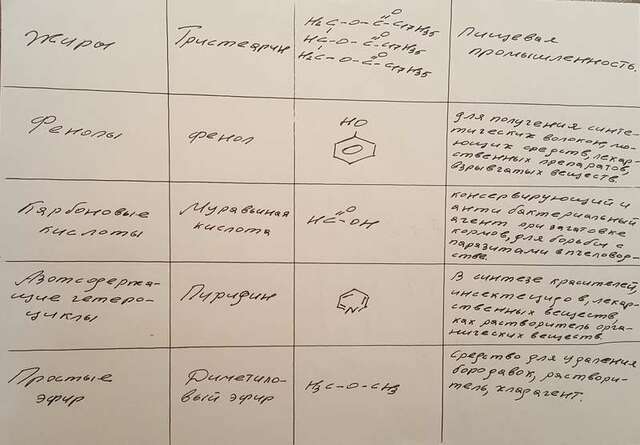 Жиры
Тристеарин
O
H2C-O-C-C17H35
O
HC-O-C-C17H35
O
H2C-O-C-C17H35
Пищевая
промышленность.
Фенолы
фенол
HO
для получения синте-
тических волокон, мо-
ющих средств, лекар-
ственных препаратов,
взрывчатых веществ.
Карбоновые
кислоты
Муравьиная
кислота
O
HC-OH
консервирующий и
анти бактериальный
агент при заготовке
кормов, для борьбы с
паразитами в пчеловод-
стве.
Азотсодержа-
щие гетеро-
циклы
Пиридин
N
В синтезе красителей,
инсектецидов, лекар-
ственных веществ,
как растворитель орга-
нических веществ.
Простые
эфир
Диметило-
вый эфир
H3C-O-CH3
Средство для удаления
бородавок, раствори-
тель, хладагент.